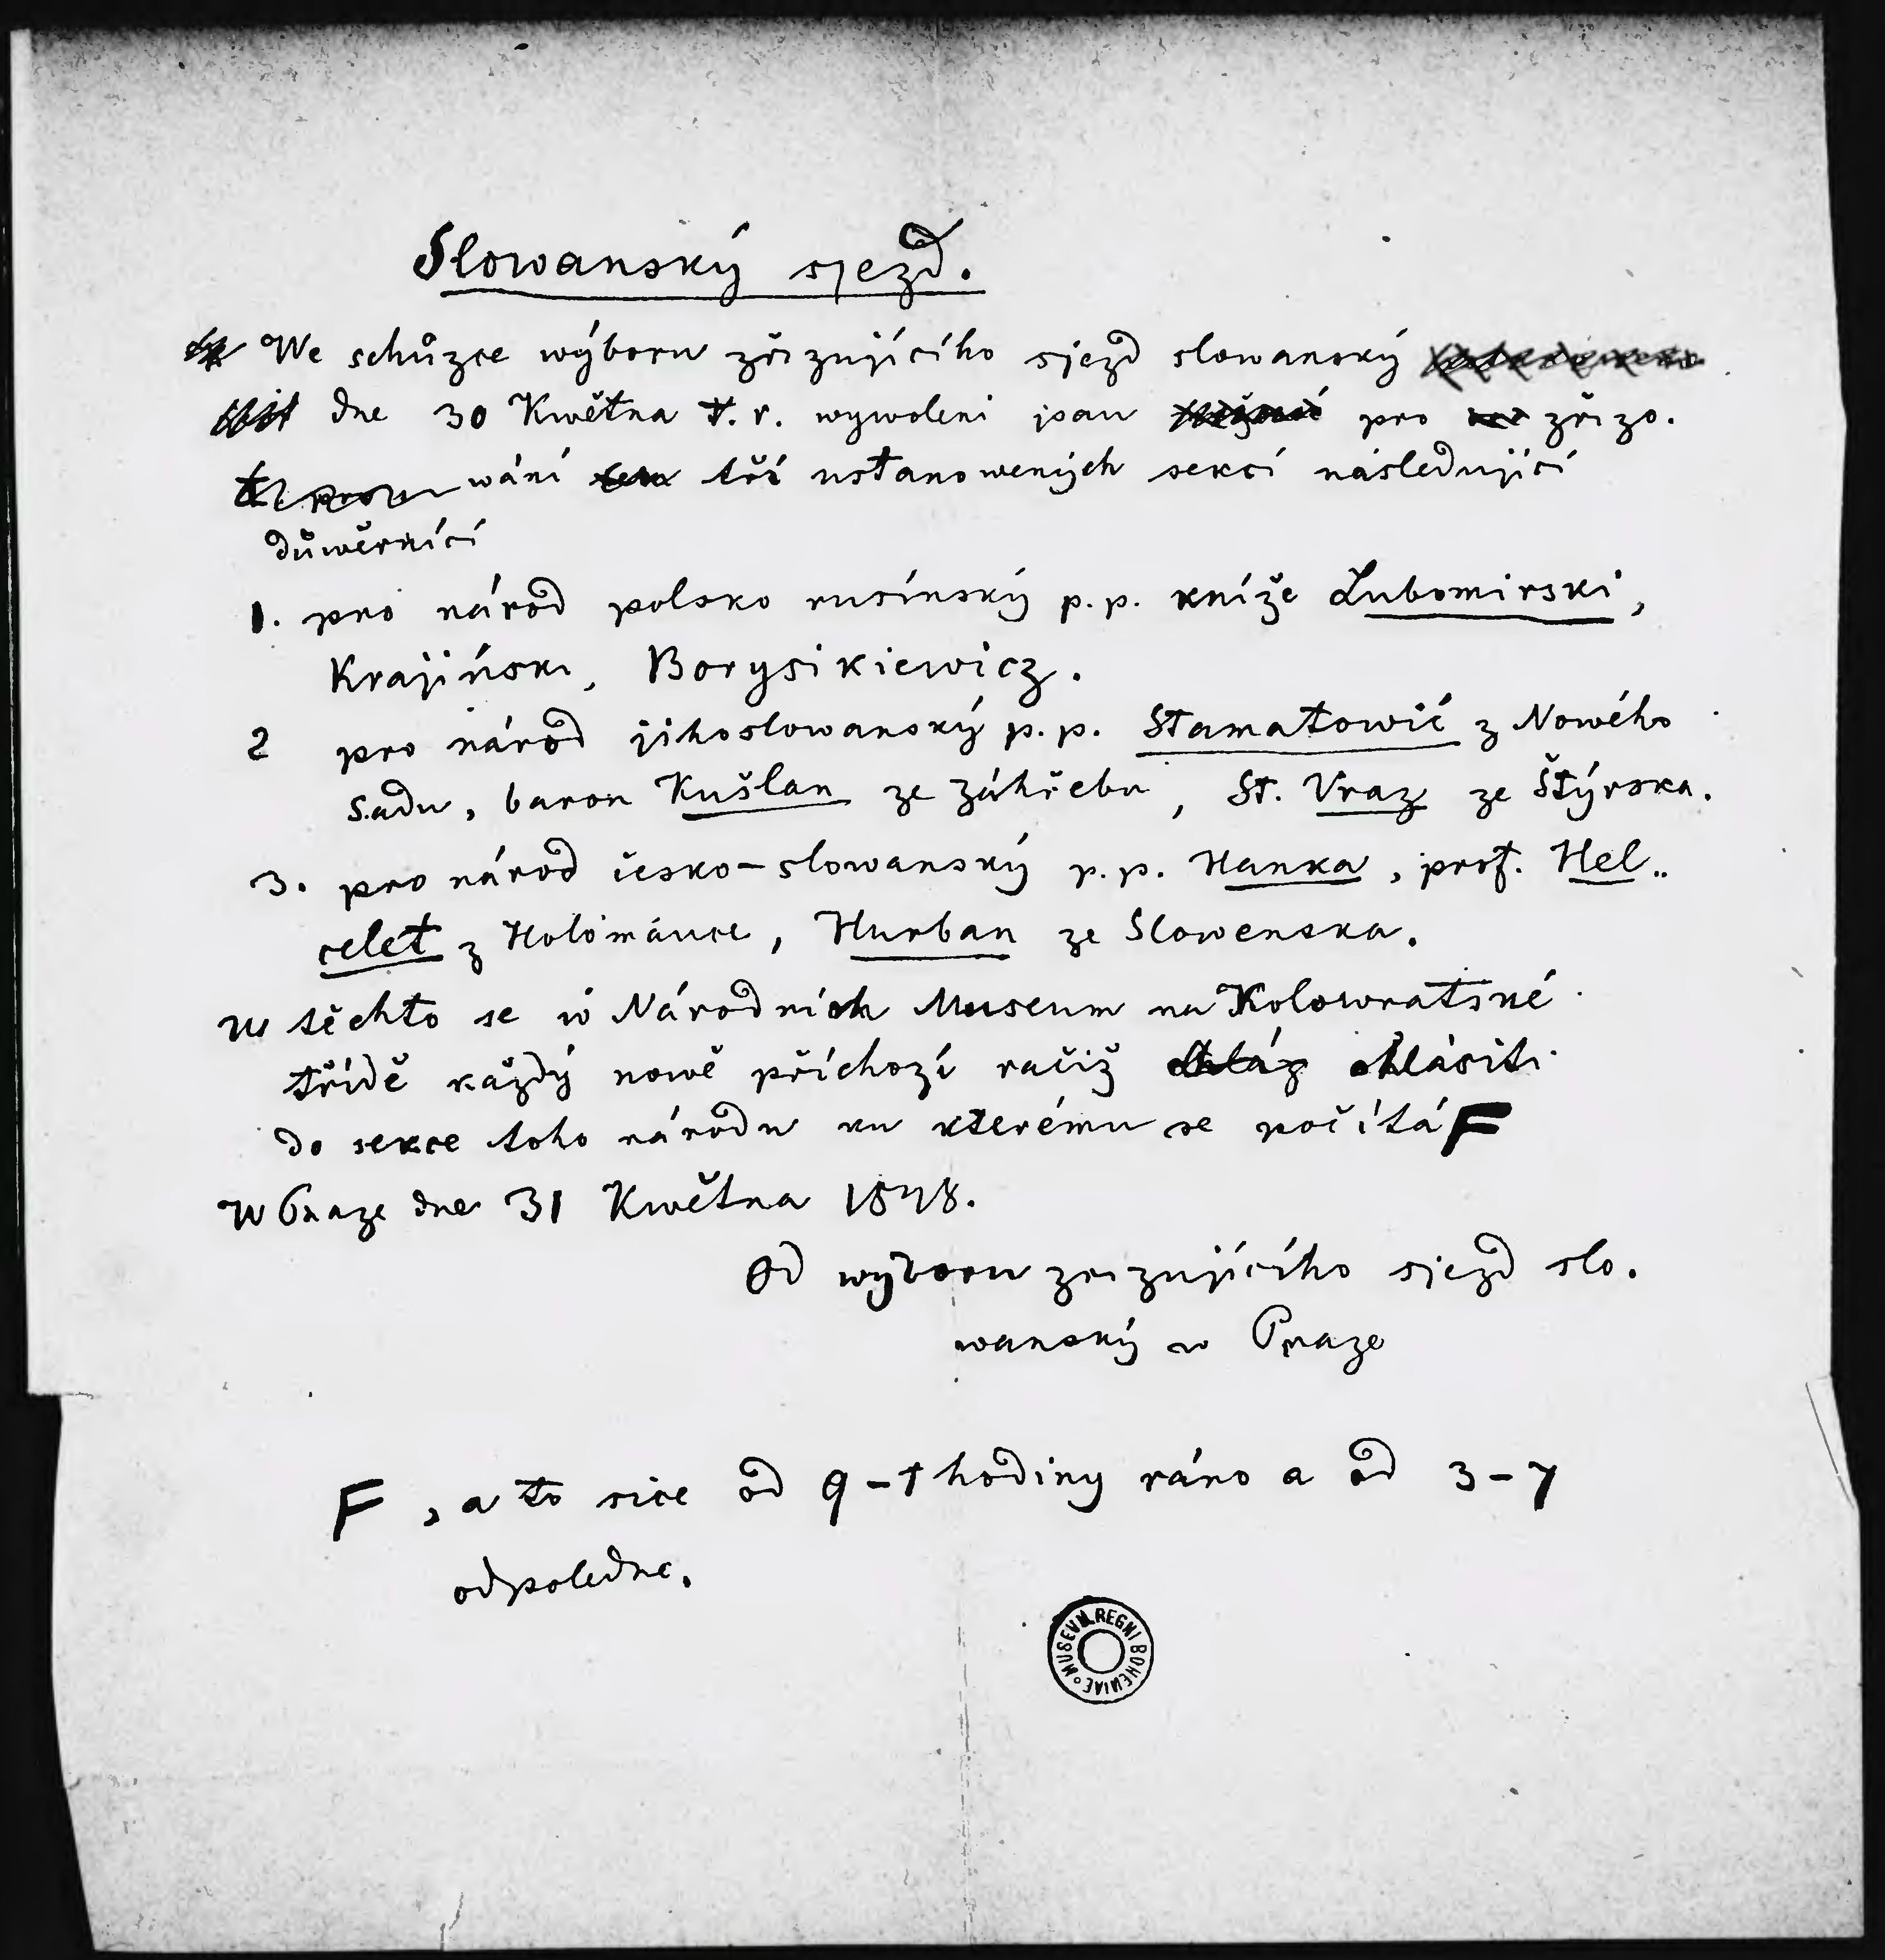 Slowanský sjezd.
We schůzce wýboru zřizujícího sjezd slowanský
dne 30 Kwětna t. r. wywoleni jsau pro zřizo.
wání tří ustanowených sekcí následující
důwěrníci
1. pro národ polsko rusínský p. p. kníže Lubomirski,
Krajiński, Borysikiewicz.
2 pro národ jihoslowanský p. p. Stamatowić z Nowého
Sadu, baron Kušlan ze Záhřebu, St. Vraz ze Štýrska.
3. pro národ česko-slowanský p. p. Hanka, prof. Hel..
celet z Holomauce, Hurban ze Slowenska.
W těchto se w Národních Museum na Kolowratské
třídě každý nowě příchozí račiž ohlásiti
do sekce toho národu ku kterému se počítá F
W Praze dne 31 Kwětna 1848.
Od wýboru zrizujícího sjezd slo.
wanský w Praze
F, a to sice od 9-1 hodiny ráno a od 3-7
odpoledne.
MUSEUM REGNI BOHEMIAE